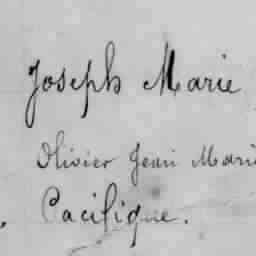 Joseph Marie
Olivier Jean Marie
Pacifique.